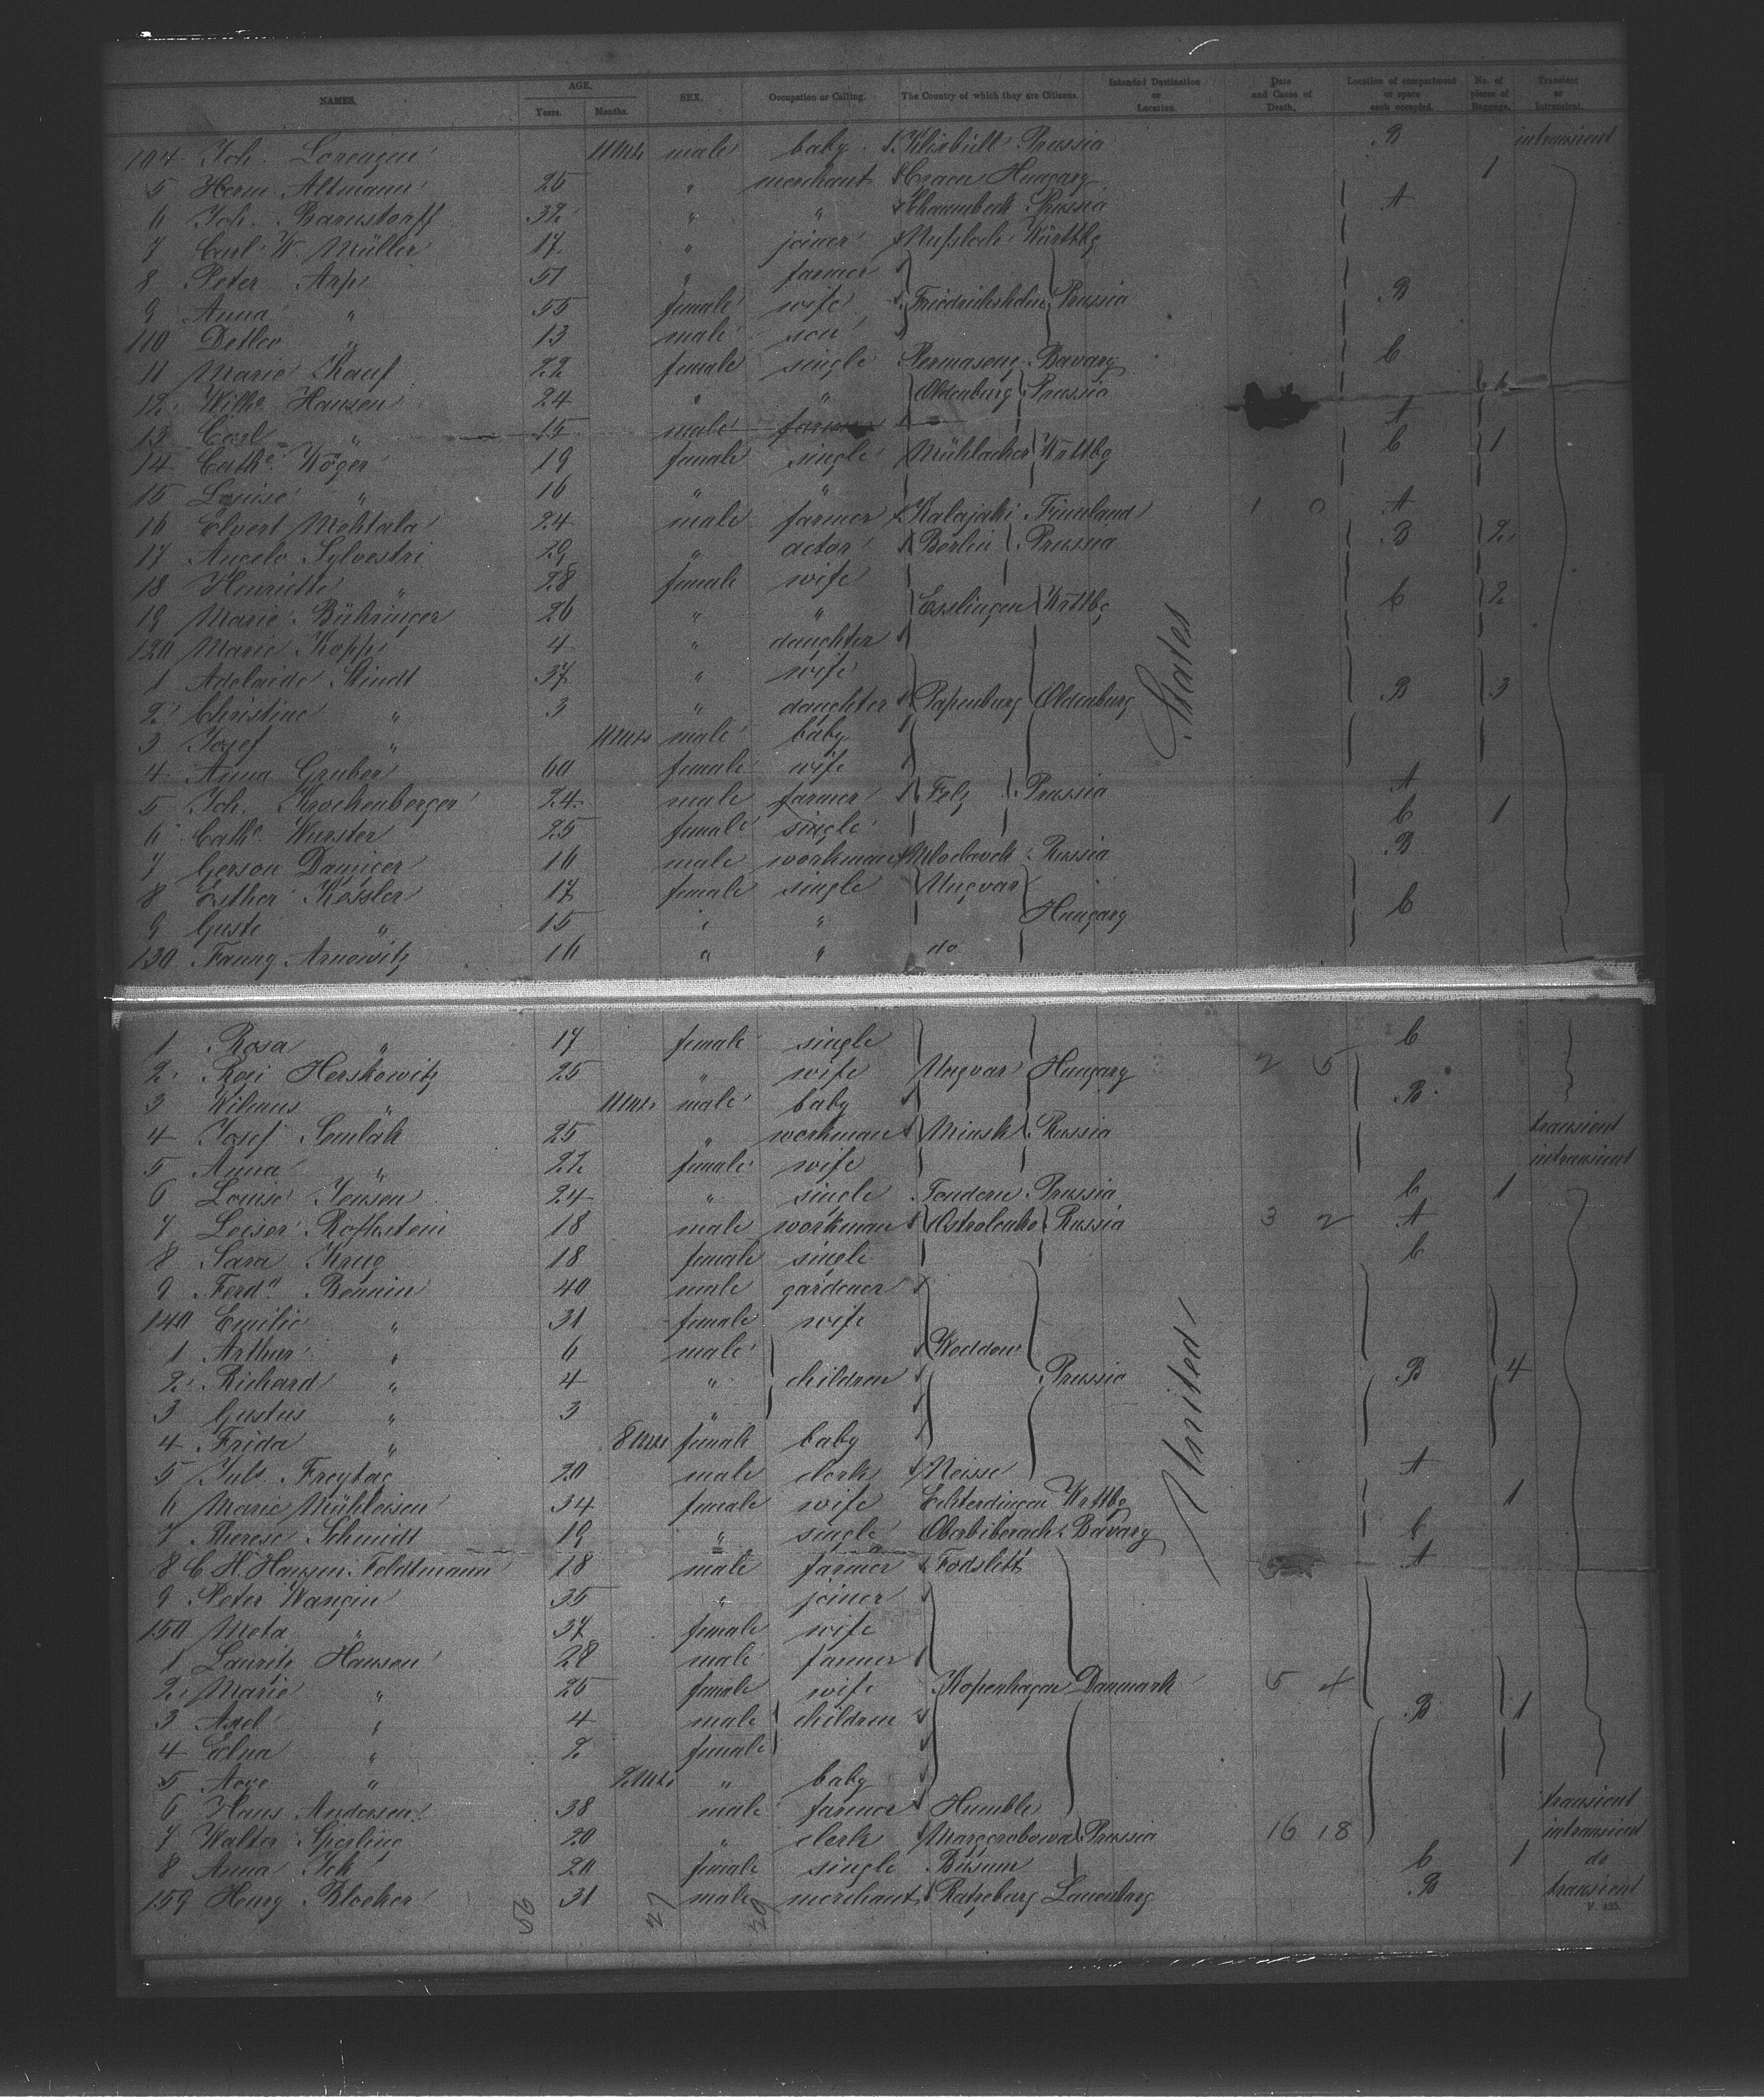 NAMES. AGE. Years. Months. SEX. Occupation or Calling. The Country of which they are Citizens. Intended Destination or Location. Date and Cause of Death. Location of compartment or space each occupied. No. of pieces of Baggage. Transient or Intransient.
104 Joh. Lorenzen 11 Mts male baby Klixbüll Prussia B intransient
5 Herm. Altmann 25 " merchant Hungary 1
6 Joh. Barnstorff 32 " " Prussia A
7 Carl W. Müller 17 " joiner Nussloch Württbg
8 Peter Arp 51 " farmer
9 Anna " 55 female wife Prussia B
110 Detlev " 13 male son
11 Marie Kauf 22 female single Permasens Bavary C
12 Wilhe Hansen 24 " " Oldenburg Prussia
13 Carl " 15 male farmer A
14 Cathe Köger 19 female single Mühlacker Wrttbg C 1
15 Louise " 16 " "
16 Elvert Mehtala 24 male farmer Kalajoki Finnland 1 0 A
17 Angelo Sylvestri 29 " actor Berlin Prussia B 2
18 Henriette " 28 female wife
19 Marie Bühringer 26 " " Esslingen Wrttbg C 2
120 Marie Kopp 4 " daughter
1 Adelaide Stindt 37 " wife
2 Christine " 3 " daughter Papenburg Oldenburg B 3
3 Josef " 11 Mts male baby
4 Anna Gruber 60 female wife
5 Joh. Krockenberger 24 male farmer Prussia A
6 Cathe Wurster 25 female single C 1
7 Gerson Danziger 16 male workman Wloclaweck Russia B
8 Esther Kessler 17 female single Ungvar
9 Guste " 15 " " Hungary C
130 Fanny Arnowitz 16 " " do
States
1 Rosa " 17 female single C
2 Rosi Herskowitz 25 " wife Ungvar Hungary 2 5
3 Wilmus " 11 Mts male baby B
4 Josef Semlak 25 " workman Minsk Russia transient
5 Anna " 22 female wife intransient
6 Louise Jensen 24 " single Tondern Prussia C 1
7 Leiser Rothstein 18 male workman Ostrolenko Russia 3 2 A
8 Sara Krug 18 female single C
9 Ferdn. Bennin 40 male gardener
140 Emilie " 31 female wife
1 Arthur " 6 male Woddow
2 Richard " 4 " children Prussia B 4
3 Gustus " 3 "
4 Frida " 8 Mts female baby
5 Juls. Freytag 20 male clerk Neisse A
6 Marie Mühleisen 34 female wife Echterdingen Wrttbg 1
7 Therese Schmidt 19 " single Oberbiberach Bavary C
8 C. H. Hansen Feldtmann 18 male farmer Fodslett A
9 Peter Wangin 35 " joiner
150 Meta " 37 female wife
1 Lauritz Hansen 28 male farmer
2 Marie " 25 female wife Kopenhagen Danmark 5 4
3 Axel " 4 male children B 1
4 Edna " 2 female
5 Aage " 2 Mts " baby
6 Hans Andersen 38 male farmer Humble transient
7 Walter Sperling 20 " clerk Marggrabowa Prussia 16 18 intransient
8 Anna Ick 20 female single Büsum C 1 do
159 Henry Blocker 31 male merchant Ratzeburg Lauenburg B transient
United
F. 125.